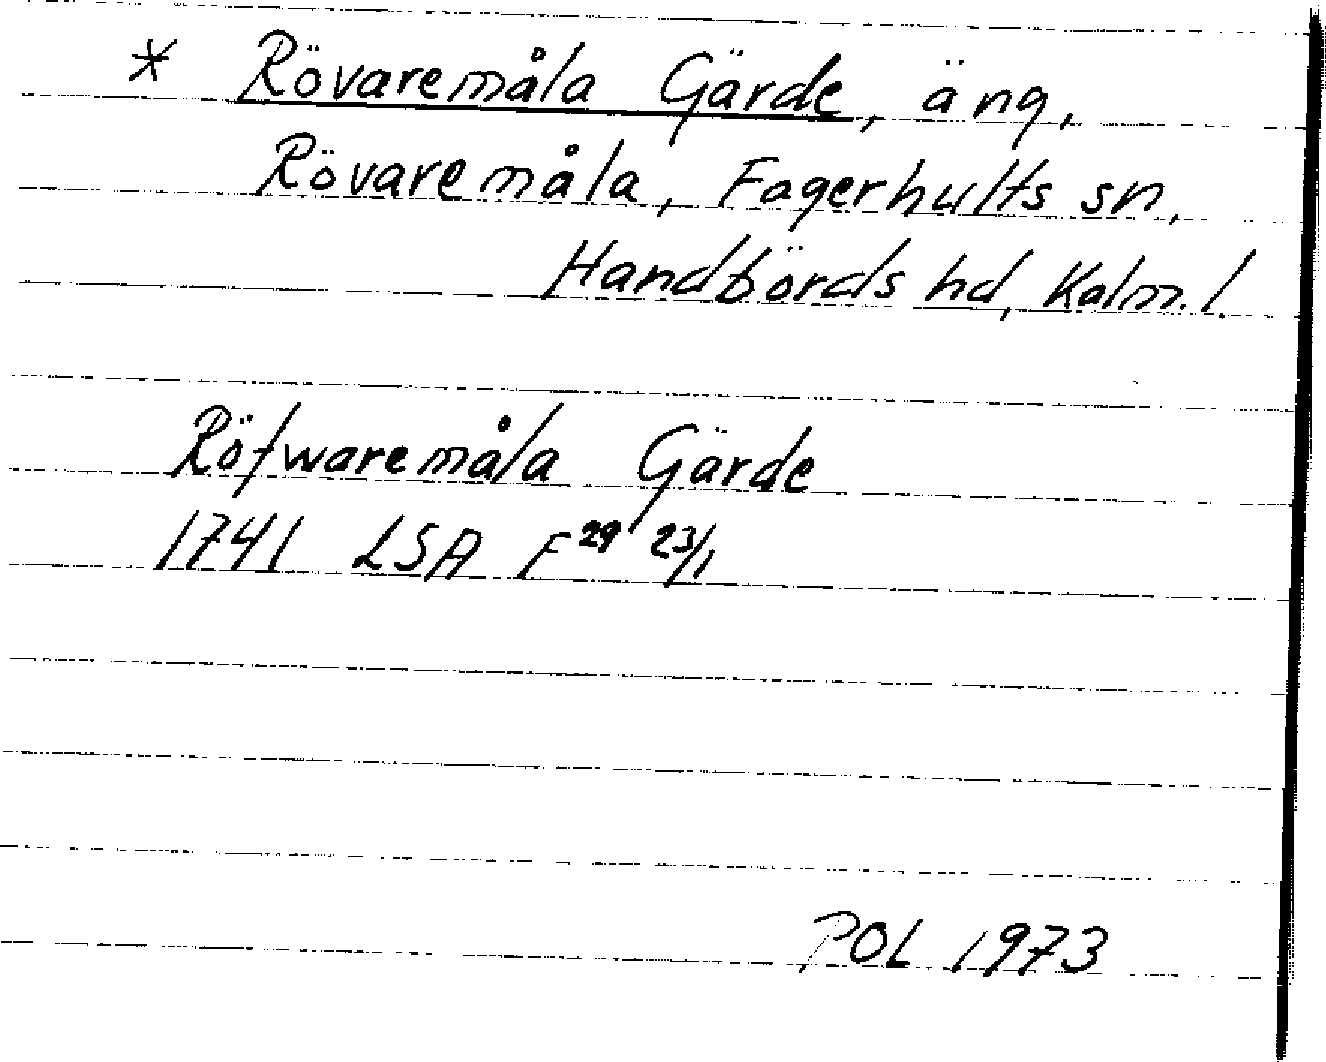 * Rövaremåla Gärde, äng,
Rövaremåla, Fagerhults sn,
Handbörds hd, Kalm. l.
Röfwaremåla Gärde
1741 LSA F²⁹ 23/1
POL 1973